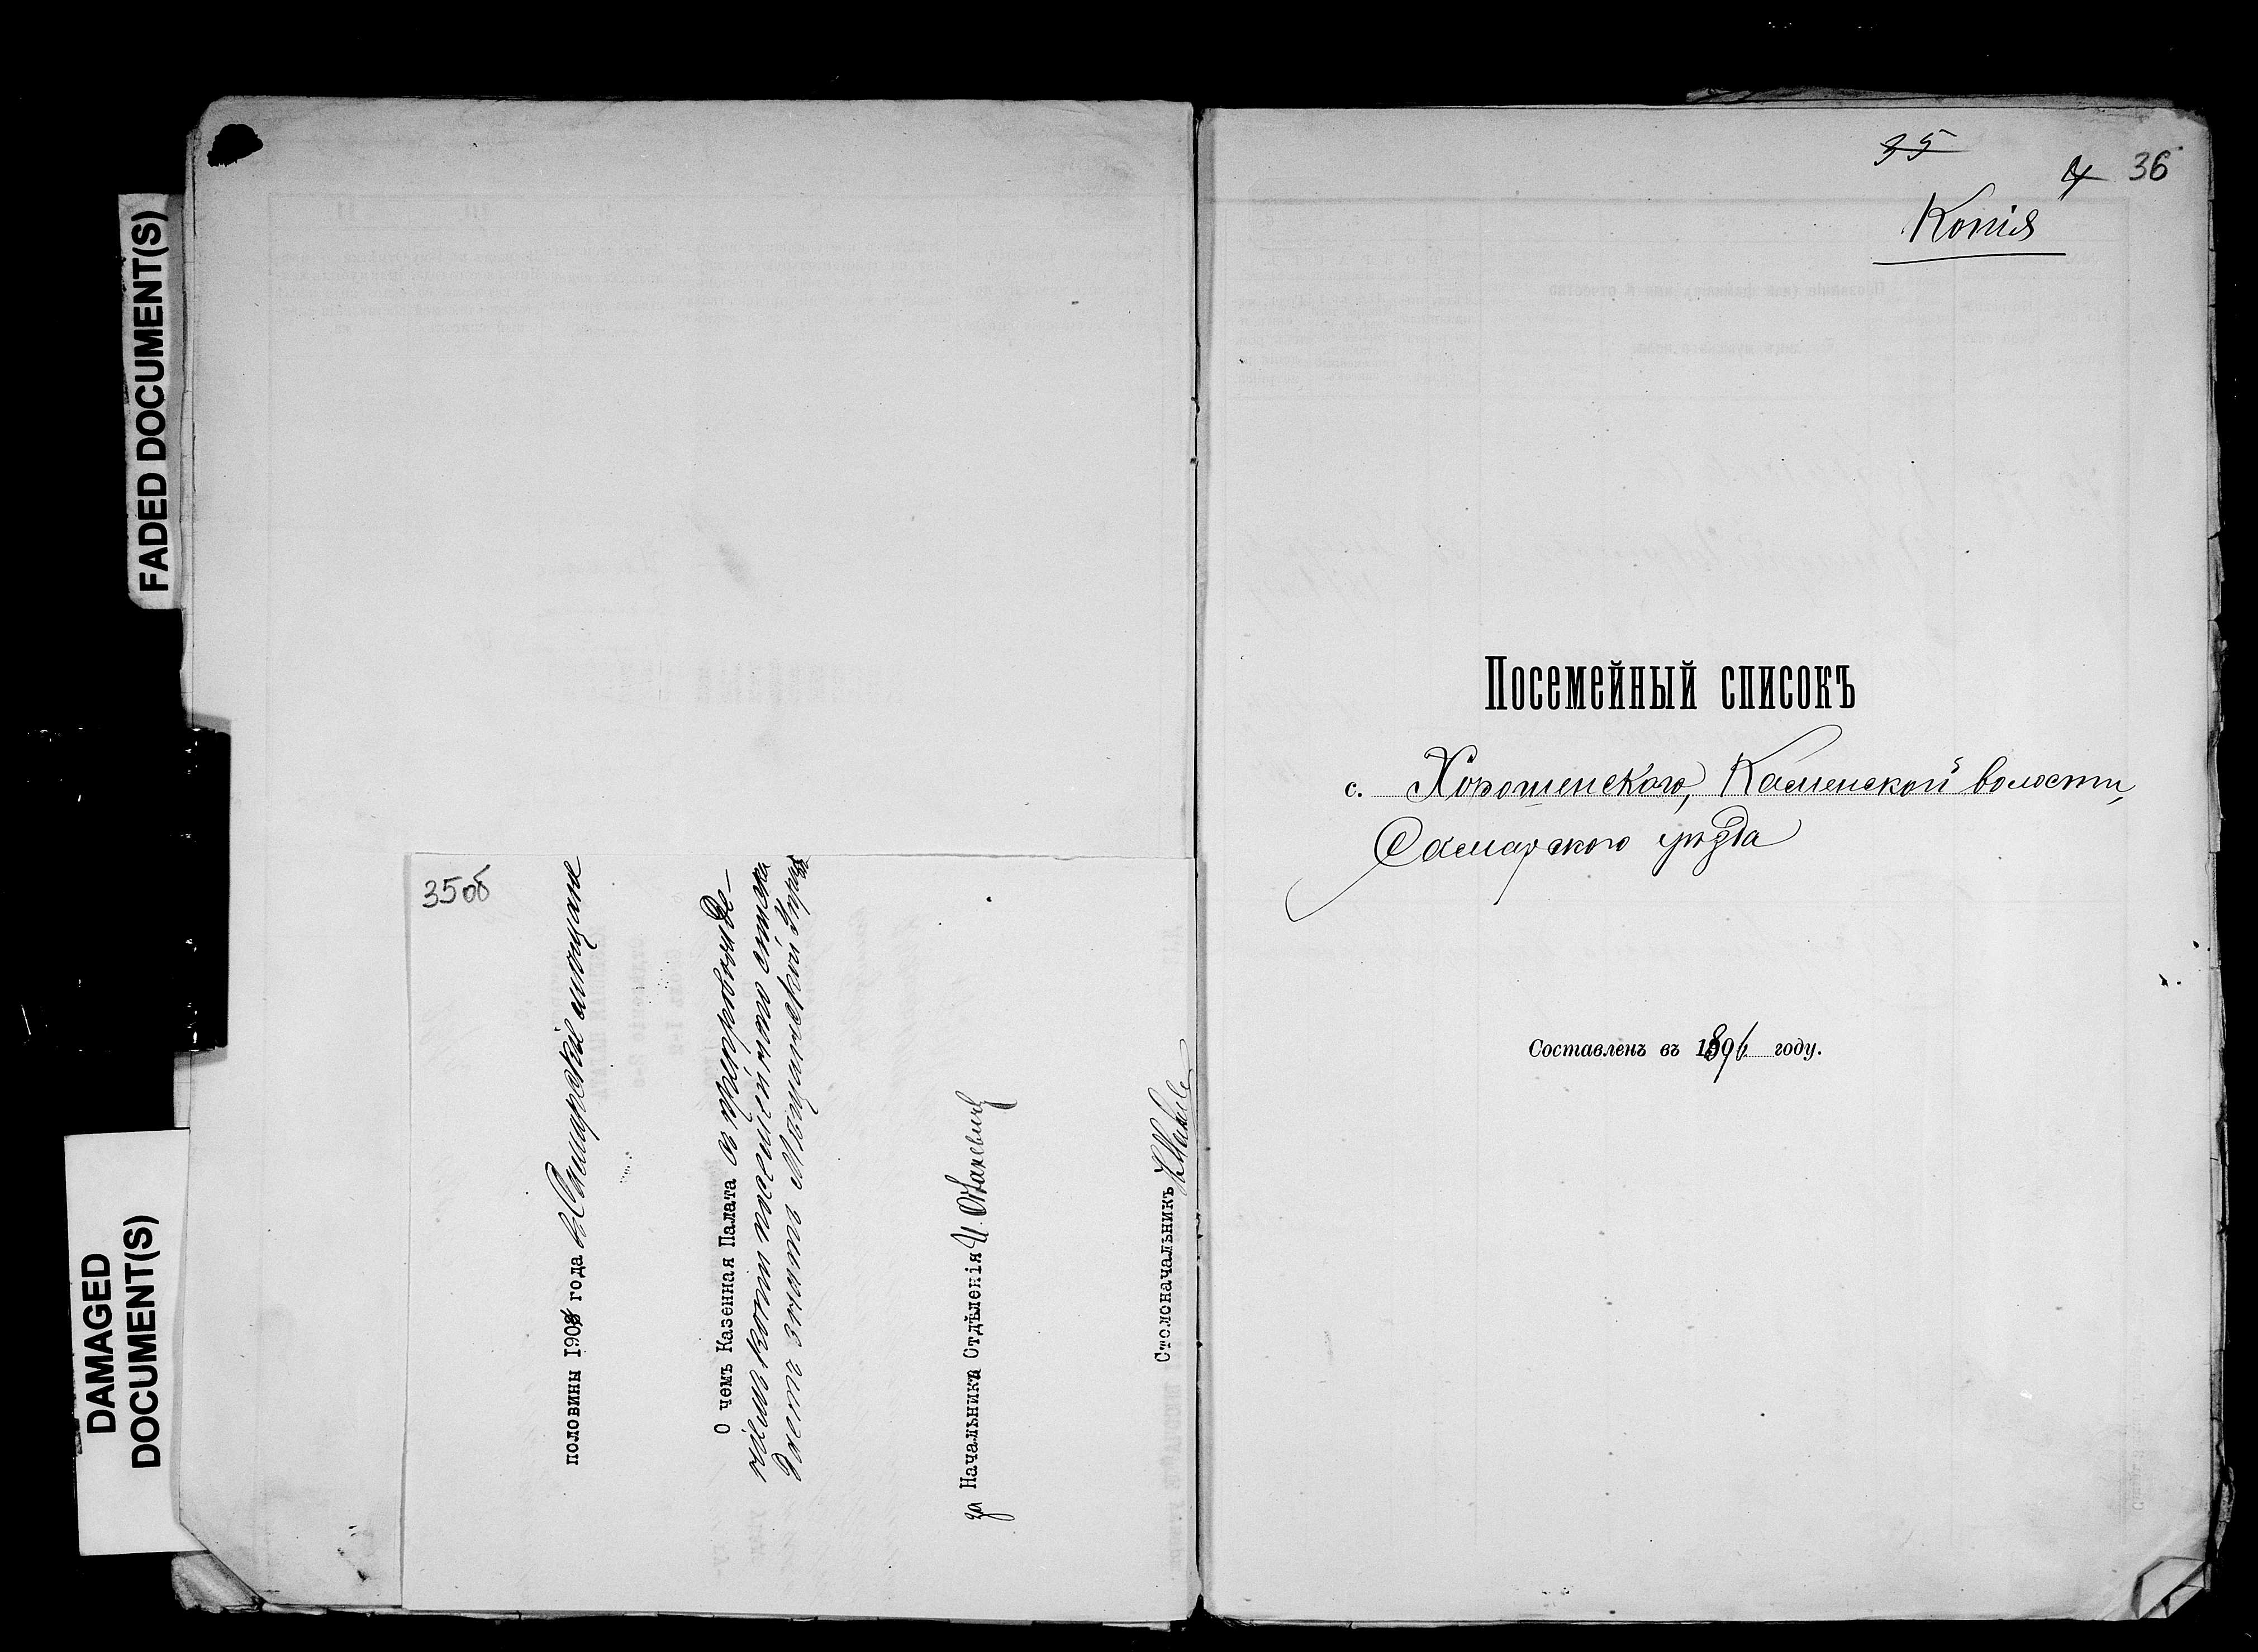 FADED DOCUMENT(S)
DAMAGED
DOCUMENT(S)
35об
половины 1908 года въ Самарскіе мѣщане
О чемъ Казенная Палата съ препровожде-
ніемъ копіи посемейнаго списка
даетъ знать Мѣщанской Управѣ
за Начальника Отдѣленія И.
Столоначальникъ
35
4 36
Копія
Посемейный списокъ
с. Хорошенскаго, Каменской волости,
Самарскаго уѣзда
Составленъ въ 1896 году.